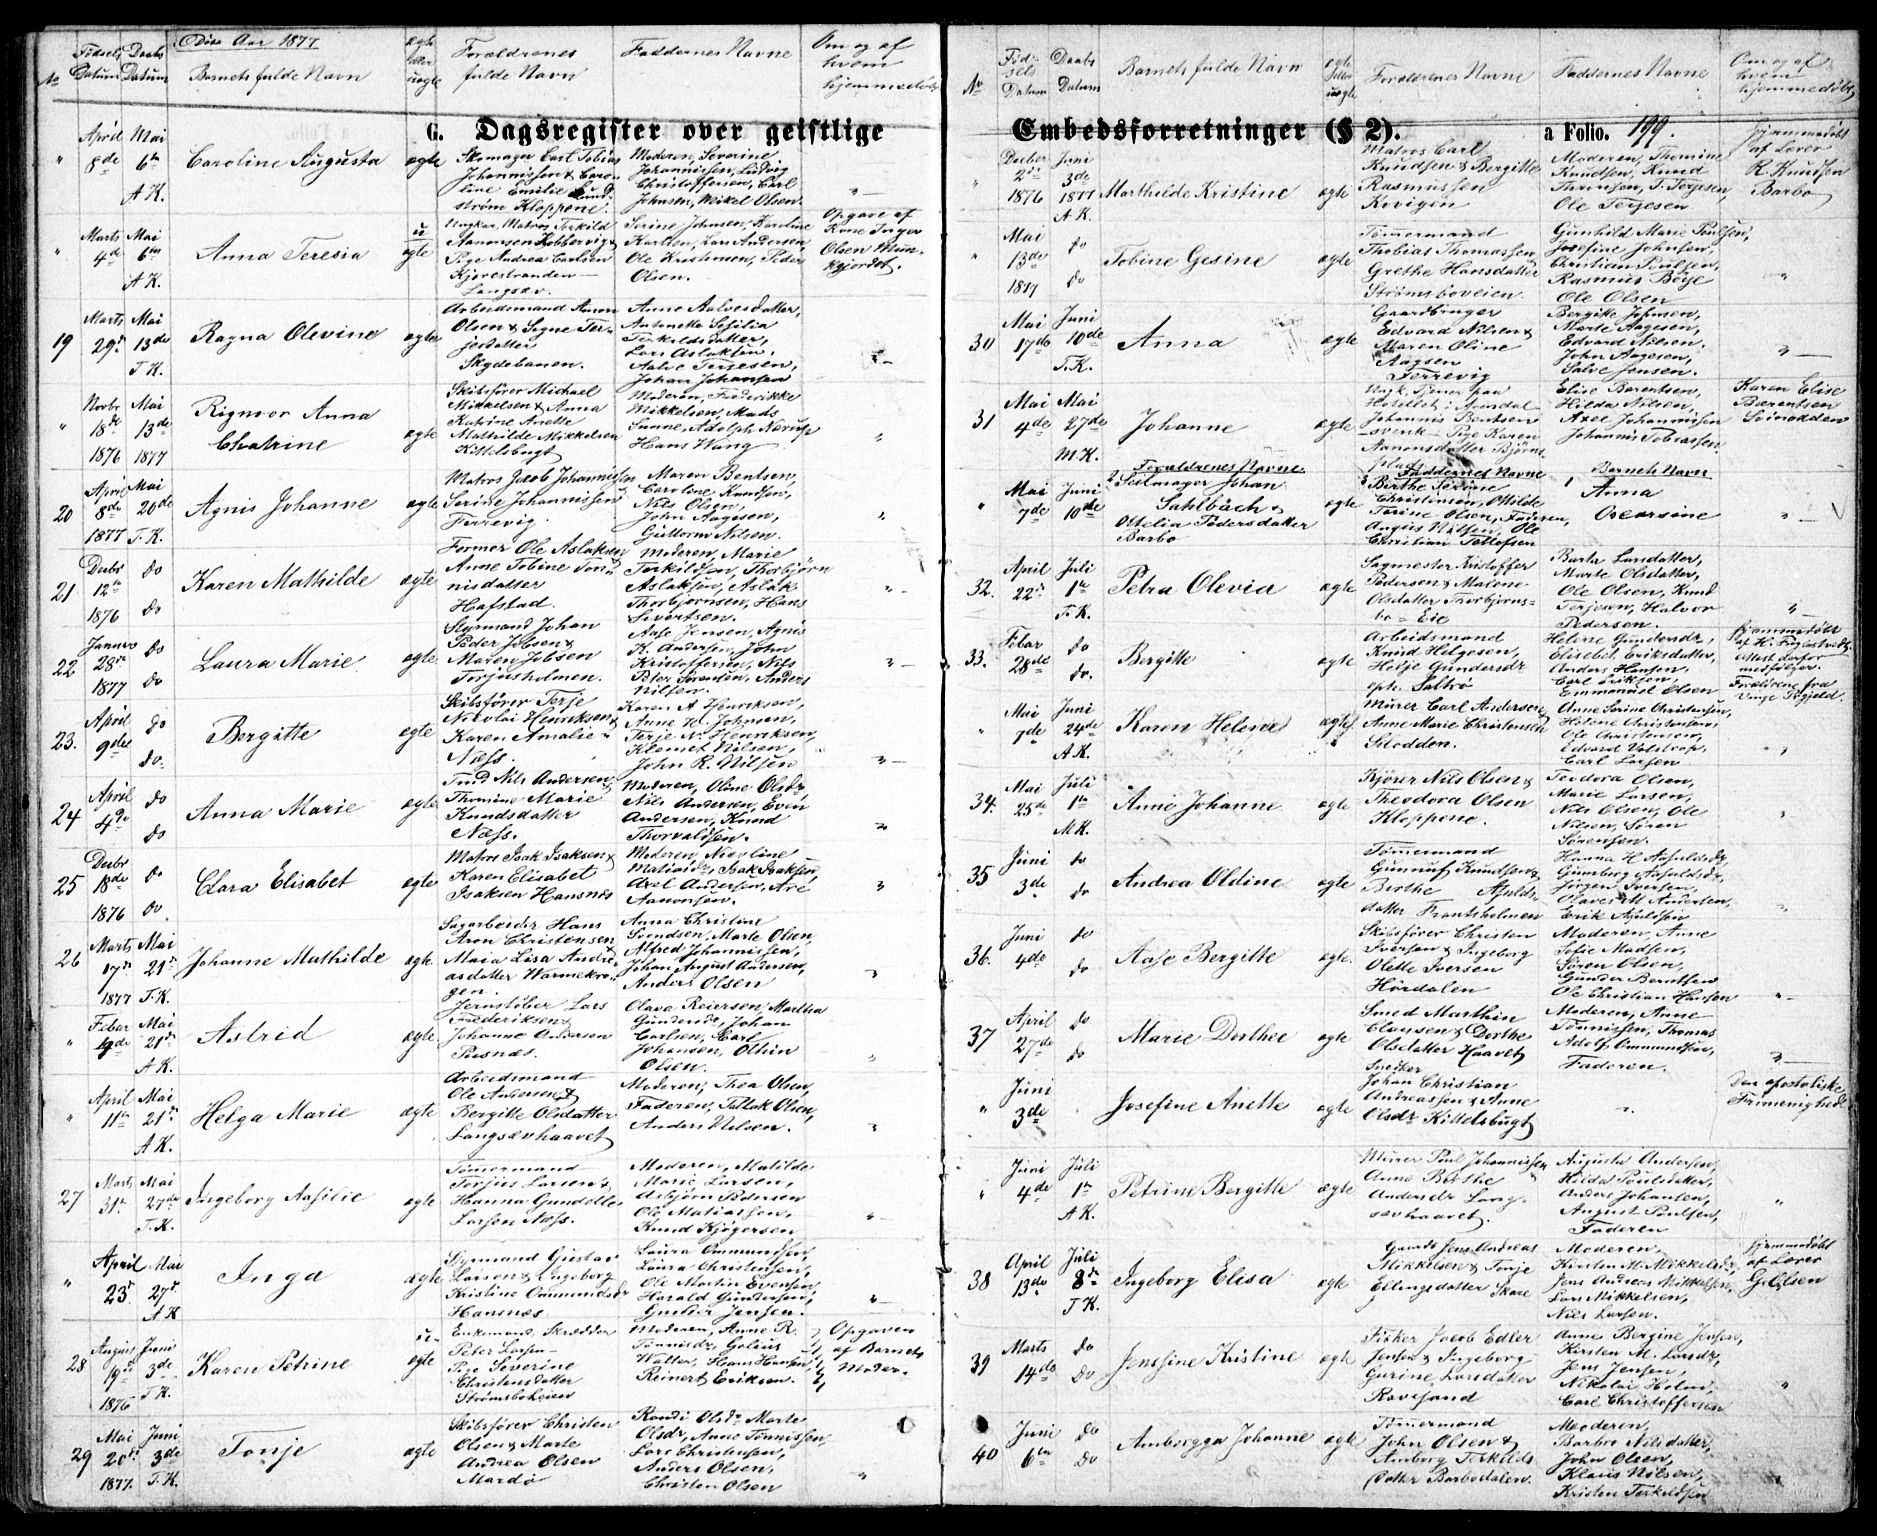 Døbe Aar 1877
No
Fødsels Datum
Daabs Datum
Barnets fulde Navn
ægte eller uægte
Forældrenes fulde Navn
Faddernes Navne
Om og af hvem hjemmedøbt
G. Dagsregister over geistlige
" April 8de Mai 6te A.K.
Caroline Augusta
ægte
Skomager Carl Tobias
Johannissen & Caro-
line Emilie Lund-
strøm Kloppene.
Moderen, Severine
Johannissen, Ludvig
Christoffersen, Carl
Johnsen, Mikel Olsen.
" Marts 4de Mai 6te A.K.
Anna Teresia
uægte
Ungkar, Matros Terkild
Aanonsen Kobbervig &
Pige Andrea Carlsen
Kjørestranden
Langsæv.
Serine Johnsen, Karoline
Karlsen, Lars Andersen,
Ole Kristensen, Peder
Olsen.
Opgave af
Kone Inger
Olsen Mun-
kejordet.
19 Marts 29de Mai 13de T.K.
Ragna Olevine
ægte
Arbeidsmand Anon
Olsen & Signe Ter-
jesdatter
Skydebanen.
Anne Aalvesdatter,
Antonette Sesilia
Terkildsdatter,
Lars Aslaksen,
Aalve Terjesen,
Johan Johansen
" Novbr 18de 1876 Mai 13de 1877
Rignvor Anna
Chatrine
ægte
Skibsfører Michael
Mikkelsen & Anna
Katrine Anette
Mathilde Mikkelsen
Kittelsbugt
Moderen, Frederikke
Mikkelsen, Mads
Sunne, Adolph Nærup
Hans Wang
20 April 8de 1877 Mai 20de T.K.
Agnis Johanne
ægte
Matros Jacob Johannissen
Serine Johannissen
Ferrevig.
Maren Bentsen,
Caroline Knudsen,
Nils Olsen,
John Aagesen,
Guttorm Nilsen.
21 Decbr 12te 1876 do do
Karen Mathilde
ægte
Former Ole Aslaksen
Anne Tobine Tøn-
nisdatter
Hafstad.
Moderen, Marie
Terkildsen, Thorbjørn
Aslaksen, Aslak
Thorbjørnsen, Hans
Sivertsen.
22 Januar 28de 1877 do do
Laura Marie
ægte
Styrmand Johan
Peder Jobsen &
Maren Jobsen
Torjusholmen.
Aase Jensen, Agnis
K. Andersen, John
Kristoffersen, Nils
Peter Sørensen, Anders
Nilsen.
23. April 9de do do.
Bergitte
ægte
Skibsfører Terje
Nicolai Henriksen &
Karen Amalie
Næss.
Karen A Henriksen,
Anne H. Johnsen,
Terje N. Henriksen,
Klemet Nilsen,
John R. Nilsen
24 April 4de do do
Anna Marie
ægte
Tmd Nils Andersen &
Thomine Marie
Knudsdatter
Næss.
Moderen, Oline Olsdr,
Nils Andersen, Even
Andersen, Knud
Thorvaldsen.
25 Decbr 18de 1876 do do
Clara Elisabet
ægte
Matros Isak Isaksen &
Karen Elisabet
Isaksen Hansnæs
Moderen, Nicoline
Matiasdr, Isak Isaksen,
Axel Andersen, Are
Aanonsen.
26 Marts 17de 1877 Mai 21de T.K.
Johanne Mathilde
ægte
Sagarbeider Hans
Aron Christensen
Maia Lisa Andre-
asdatter Warmekro-
gen.
Anna Christine
Svendsen, Marte Olsen,
Alfred Johannissen,
Johan August Andersen,
Anders Olsen
" Febar 4de Mai 21de A.K.
Astrid
ægte
Jernstøber Lars
Frederiksen &
Johanne Andersen
Pusnæs.
Olava Reiersen, Martha
Gundersdr, Johan
Carlsen, Carl
Johansen, Othin
Olsen.
" April 11te Mai 21de A.K.
Helga Marie
ægte
Arbeidsmand
Ole Andersen &
Bergitte Olsdatter
Langsævhaavet
Moderen, Thea Olsen,
Faderen, Tallak Olsen,
Anders Nilsen.
27 Marts 31te Mai 27de T.K.
Ingeborg Aasilie
ægte
Tømmermand
Torjus Larsen &
Hanna Gundelle
Larsen Næss.
Moderen, Matilde
Marie Larsen,
Asbjørn Pedersen
Ole Matiassen,
Knud Kjøgersen
" April 23de Mai 27de A K
Inga
ægte
Styrmand Gustav
Larsen & Ingeborg
Kristine Ommundsdr
Hansnæs.
Laura Ommundsen,
Laura Christensen,
Ole Martin Evensen,
Harald Gundersen,
Gunder Jensen.
28 August 19de 1876 Juni 3de T.K.
Karen Petrine
uægte
Enkemand, Skrædder
Peter Larsen
Pige Severine
Christensdatter
Strømsboheien
Moderen, Anne R.
Tønnisdr, Gelius
Walter, Hans Hansen,
Reinert Eriksen.
Opgaven
af Barnets
Moder.
29 Mai 20de 1877. Juni 3de T.K.
Tonje
ægte
Skibsfører Christen
Olsen & Marte
Andrea Olsen
Mardø
Randi Olsdr, Marte
Olsdr, Anne Tønnissen,
Lars Christensen,
Anders Olsen,
Christen Olsen
No
Fødsels Datum
Daabs Datum
Barnets fulde Navn
ægte eller uægte
Forældrenes Navne
Faddernes Navne
Om og af hvem hjemmedøbt
Embedsforretninger (§ 2). a Folio. 199.
" Decber 2den 1876 Juni 3de 1877 A.K.
Marthilde Kristine
ægte
Matros Carl
Knudsen & Bergitte
Rasmussen
Kvvigen
Moderen, Thomine
Knudsen, Knud
Thronsen, T. Terjesen,
Ole Terjesen
Hjemmedøbt
af Lærer
R. Knudsen
Barbo
" Mai 13de 1877 do do
Tobine Gesine
ægte
Tømmermand
Thobias Thomassen &
Grethe Hansdatter
Strømsboveien.
Gunhild Marie Poulsen,
Josefine Johnsen,
Christian Poulsen,
Rasmus Bøye
Ole Olsen
30 Mai 17de Juni 10de T.K.
Anna
ægte
Gaardbruger
Edvard Nilsen &
Maren Oline
Aagsen
Ferrevig
Bergitte Johnsen,
Marte Aagesen,
Edvard Nilsen.
John Aagesen,
Salve Jensen.
31 Mai 4de Mai 27de M.K.
Johanne
uægte
Johannis Berntsen
svensk Pige Karen
Aanonsdatter Bjørns-
plads
Elise Berentsen,
Hilda Nilsen,
Axel Johannissen
Johannis Tobiassen.
Karen Elise
Berentsen
Svinodden
" Mai 7de Juni 10de
Forældrenes Navne
2 Seilmager Johan
Sahlbäch &
Ottelia Pedersdatter
Barbo
ægte
Faddernes Navne
3 Berthe Terine
Christensen, Otilde
Terine Olsen, Faderen,
August Nilsen, Ole
Christian Tellefsen
Barnets Navn
1 Anna
Oscarsine
32. April 22de Juli 1te T.K.
Petra Olevia
ægte
Sagmester Kristoffer
Pedersen & Malene
Olsdatter Thorbjørns-
bo Eie
Berta Larsdatter,
Marte Olsdatter,
Ole Olsen, Knud
Terjesen, Halvor
Pedersen.
33. Febar 28de do do.
Bergitte
ægte
Arbeidsmand
Knud Helgesen,
Helje Gundersdr
opk. Saltrø
Helene Gundersdr,
Elisebet Eriksdatter,
Anders Hansen,
Carl Eriksen,
Emmanuel Olsen
Hjemmedøbt
af H. Frigestvedt,
Attest derfor
medfølger.
Forældrene fra
Vinje Prgjeld.
" Mai 7de Juni 24de A.K.
Karen Helene
ægte
Murer Carl Andersen &
Anne Marie Christensen
Slodden.
Anne Serine Christensen,
Helene Christensen,
Ole Christensen,
Edvard Valstrop,
Carl Larsen
34. Mai 25de Juli 1te M.K.
Anne Johanne
ægte
Kjører Nils Olsen &
Theodora Olsen
Kloppene.
Teodora Olsen,
Marie Larsen,
Nils Olsen, Ole
Nilsen, Søren
Sørensen.
35 Juni 3de do do
Andrea Oldine
ægte
Tømmermand
Gunnuf Knudsen &
Berthe Asulds-
datter Frantsholmen
Hanna H Aasuldsdr,
Gunborg Aasuldsdr,
Jørgen Iversen,
Olaves M Andersen,
Erik Asuldsen
36. Juni 4de do do
Aase Bergitte
ægte.
Skibsfører Christen
Iversen & Ingeborg
Olette Iversen
Hørdalen
Moderen, Anne
Sofie Madsen,
Søren Olsen,
Gunder Berntsen
Ole Christian Hansen
37 April 27de do do
Marie Dorthee
ægte
Smed Marthin
Clausen & Dorthe
Olsdatter Haavet
Moderen, Anne
Tønnissen, Thomas
Adolf Ommundsen,
Faderen.
" Juni 3de
Josefine Anette
ægte
Snedker
Johan Christian
Andreassen & Anne
Olsdr Kittelsbugt
Den apostoliske
Frimenighed.
" Juni 4de Juli 1te A.K.
Petrine Bergitte
ægte
Murer Poul Johannissen
Anne Berthe
Andersdr Lang-
sævhaavet.
Augusta Andersen,
Hilda Poulsdatter,
Anders Johansen,
August Poulsen,
Faderen
38 April 13de Juli 8de T K.
Ingeborg Elisa
ægte
Gaardb Jens Andreas
Mikkelsen & Tonje
Ellingsdatter Skare
Moderen,
Kirsten M. Mikkelsdr,
Jens Andreas Mikkelsen,
Lars Mikkelsen,
Nils Larsen.
Hjemmedøbt
af Lærer
G. Olsen
39 Marts 14de do do
Jensine Kristine
ægte
Fisker Jacob Edler
Jensen & Ingeborg
Gurine Larsdatter
Rævesand
Anne Bergine Jensen,
Kirsten M. Larsdr,
Jens Jensen,
Nikolai Holm,
Carl Christoffersen
40 Juni 6te do do
Amborgga Johanne
ægte
Tømmermand
John Olsen &
Amborg Terkilds
datter Barbodalen.
Moderen,
Barbro Nilsdatter,
John Olsen,
Klaus Nilsen,
Kristen Terkildsen